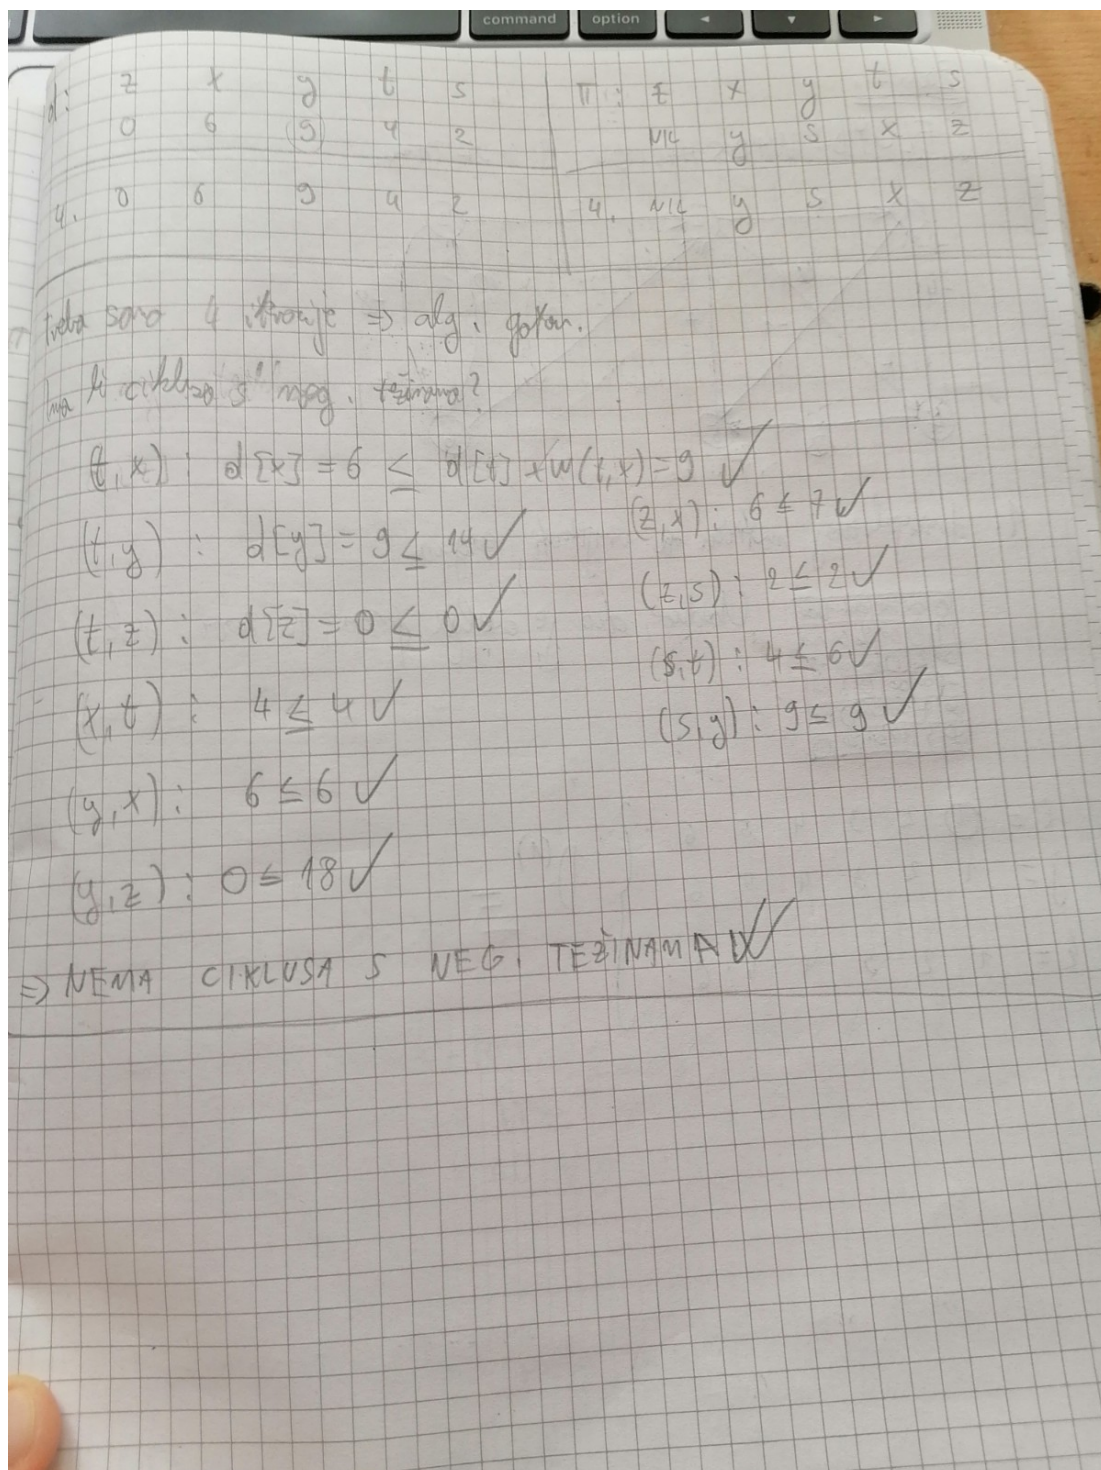 command option ◄ ▼ ►
d: z x y t s
0 6 9 4 2
π: z x y t s
NIL y s x z
4. 0 6 9 4 2
4. NIL y s x z
treba samo 4 iteracije => alg. gotov.
Ima li ciklusa s neg. težinama?
(t,x): d[x] = 6 ≤ d[t] + w(t,x) = 9 ✓
(t,y): d[y] = 9 ≤ 14 ✓
(t,z): d[z] = 0 ≤ 0 ✓
(x,t): 4 ≤ 4 ✓
(y,x): 6 ≤ 6 ✓
(y,z): 0 ≤ 18 ✓
(z,x): 6 ≤ 7 ✓
(z,s): 2 ≤ 2 ✓
(s,t): 4 ≤ 6 ✓
(s,y): 9 ≤ 9 ✓
=> NEMA CIKLUSA S NEG. TEŽINAMA ✓✓